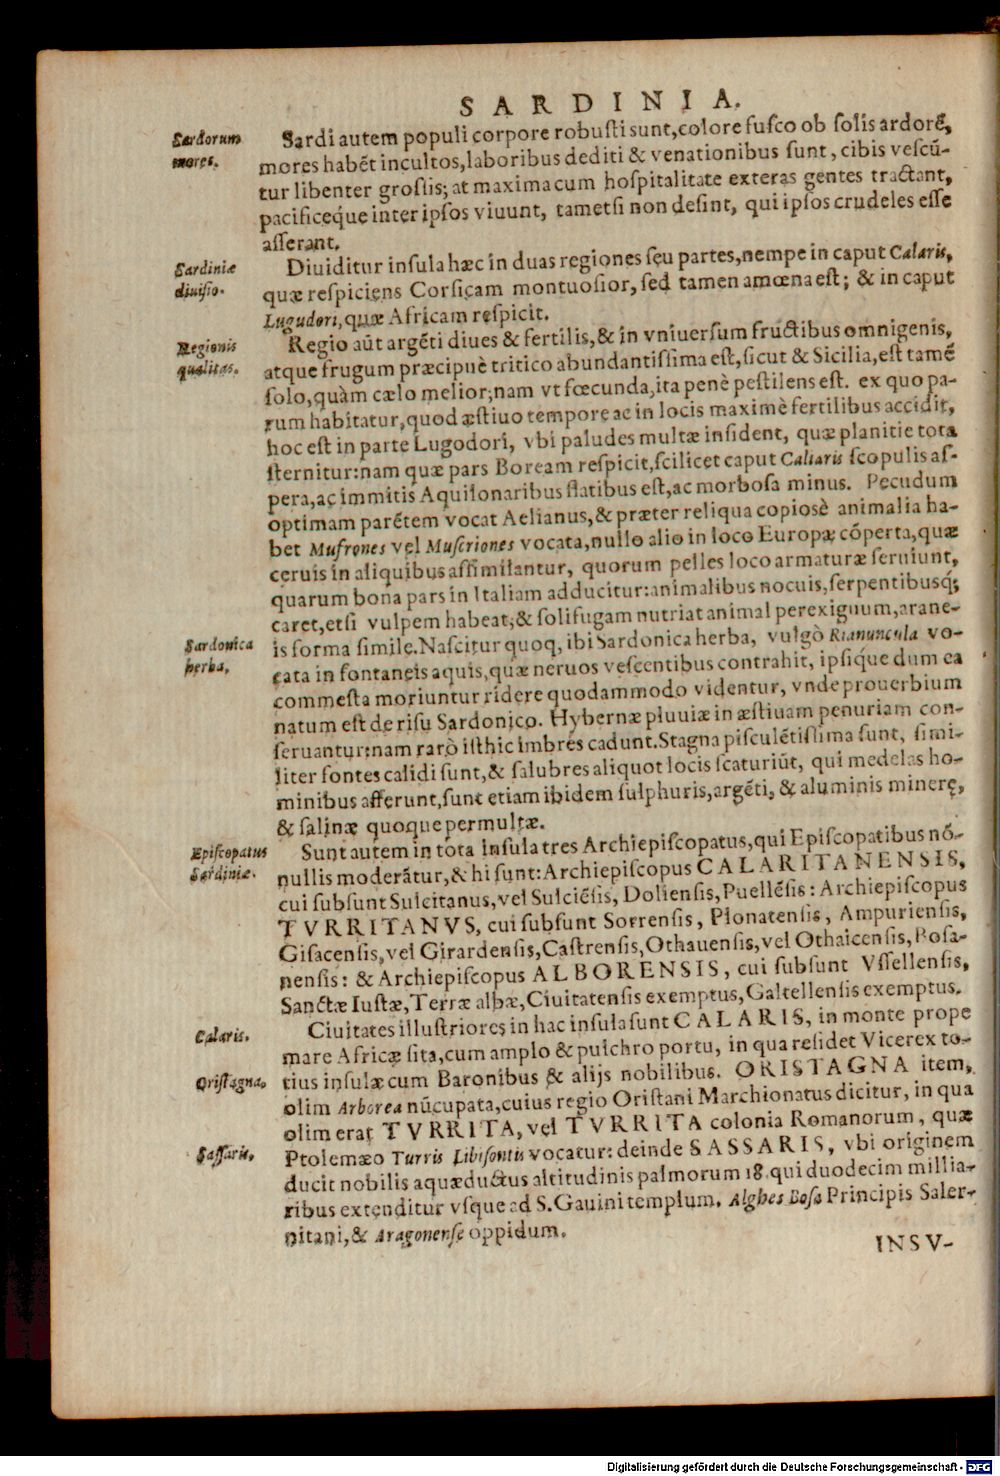 SARDINIA.
Sardorum
mores.
Sardi autem populi corpore robusti sunt, colore fusco ob solis ardorẽ,
mores habẽt incultos, laboribus dediti & venationibus sunt, cibis vescũ-
tur libenter grossis; at maxima cum hospitalitate exteras gentes tractant,
pacificeque inter ipsos viuunt, tametsi non desint, qui ipsos crudeles esse
asserant.
Sardiniæ
diuisio.
Diuiditur insula hæc in duas regiones seu partes, nempe in caput Calaris,
quæ respiciens Corsicam montuosior, sed tamen amœna est; & in caput
Lugudori, quæ Africam respicit.
Regionis
qualitas.
Regio aũt argẽti diues & fertilis, & in vniuersum fructibus omnigenis,
atque frugum præcipuè tritico abundantissima est, sicut & Sicilia, est tamẽ
solo, quàm cælo melior; nam vt fœcunda, ita penè pestilens est. ex quo pa-
rum habitatur, quod æstiuo tempore ac in locis maximè fertilibus accidit,
hoc est in parte Lugodori, vbi paludes multæ insident, quæ planitie tota
sternitur: nam quæ pars Boream respicit, scilicet caput Caliaris scopulis as-
pera, ac immitis Aquilonaribus flatibus est, ac morbosa minus. Pecudum
optimam parẽtem vocat Aelianus, & præter reliqua copiosè animalia ha-
bet Mufrones vel Muscriones vocata, nullo alio in loco Europæ cõperta, quæ
ceruis in aliquibus assimilantur, quorum pelles loco armaturæ seruiunt,
quarum bona pars in Italiam adducitur: animalibus nocuis, serpentibusq;
caret, etsi vulpem habeat; & solifugam nutriat animal perexiguum, arane-
is forma simile. Nascitur quoq, ibi Sardonica herba, vulgò Rianuncula vo-
Sardonica
herba,
cata in fontaneis aquis, quæ neruos vescentibus contrahit, ipsique dum ea
commesta moriuntur ridere quodammodo videntur, vnde prouerbium
natum est de risu Sardonico. Hybernæ pluuiæ in æstiuam penuriam con-
seruantur: nam rarò isthic imbres cadunt. Stagna pisculẽtissima sunt, simi-
liter fontes calidi sunt, & salubres aliquot locis scaturiũt, qui medelas ho-
minibus afferunt, sunt etiam ibidem sulphuris, argẽti, & aluminis mineræ,
& salinæ quoque permultæ.
Episcopatus
Sardiniæ.
Sunt autem in tota insula tres Archiepiscopatus, qui Episcopatibus nõ-
nullis moderãtur, & hi sunt: Archiepiscopus CALARITANENSIS,
cui subsunt Sulcitanus, vel Sulciẽsis, Doliensis, Puellẽsis: Archiepiscopus
TVRRITANVS, cui subsunt Sorrensis, Plonatensis, Ampuriensis,
Gisacensis, vel Girardensis, Castrensis, Othauensis, vel Othaicensis, Bosa-
nensis: & Archiepiscopus ALBORENSIS, cui subsunt Vssellensis,
Sanctæ Iustæ, Terræ albæ, Ciuitatensis exemptus, Galtellensis exemptus.
Calaris.
Ciuitates illustriores in hac insula sunt CALARIS, in monte prope
mare Africæ sita, cum amplo & pulchro portu, in qua residet Vicerex to-
Oristagna.
tius insulæ cum Baronibus & alijs nobilibus. ORISTAGNA item,
olim Arborea nũcupata, cuius regio Oristani Marchionatus dicitur, in qua
olim erat TVRRITA, vel TVRRITA colonia Romanorum, quæ
Sassaris,
Ptolemæo Turris Libisontis vocatur: deinde SASSARIS, vbi originem
ducit nobilis aquæductus altitudinis palmorum 18. qui duodecim millia-
ribus extenditur vsque ad S. Gauini templum. Alghes Bosa Principis Saler-
nitani, & Aragonense oppidum.
INSV-
Digitalisierung gefördert durch die Deutsche Forschungsgemeinschaft - DFG